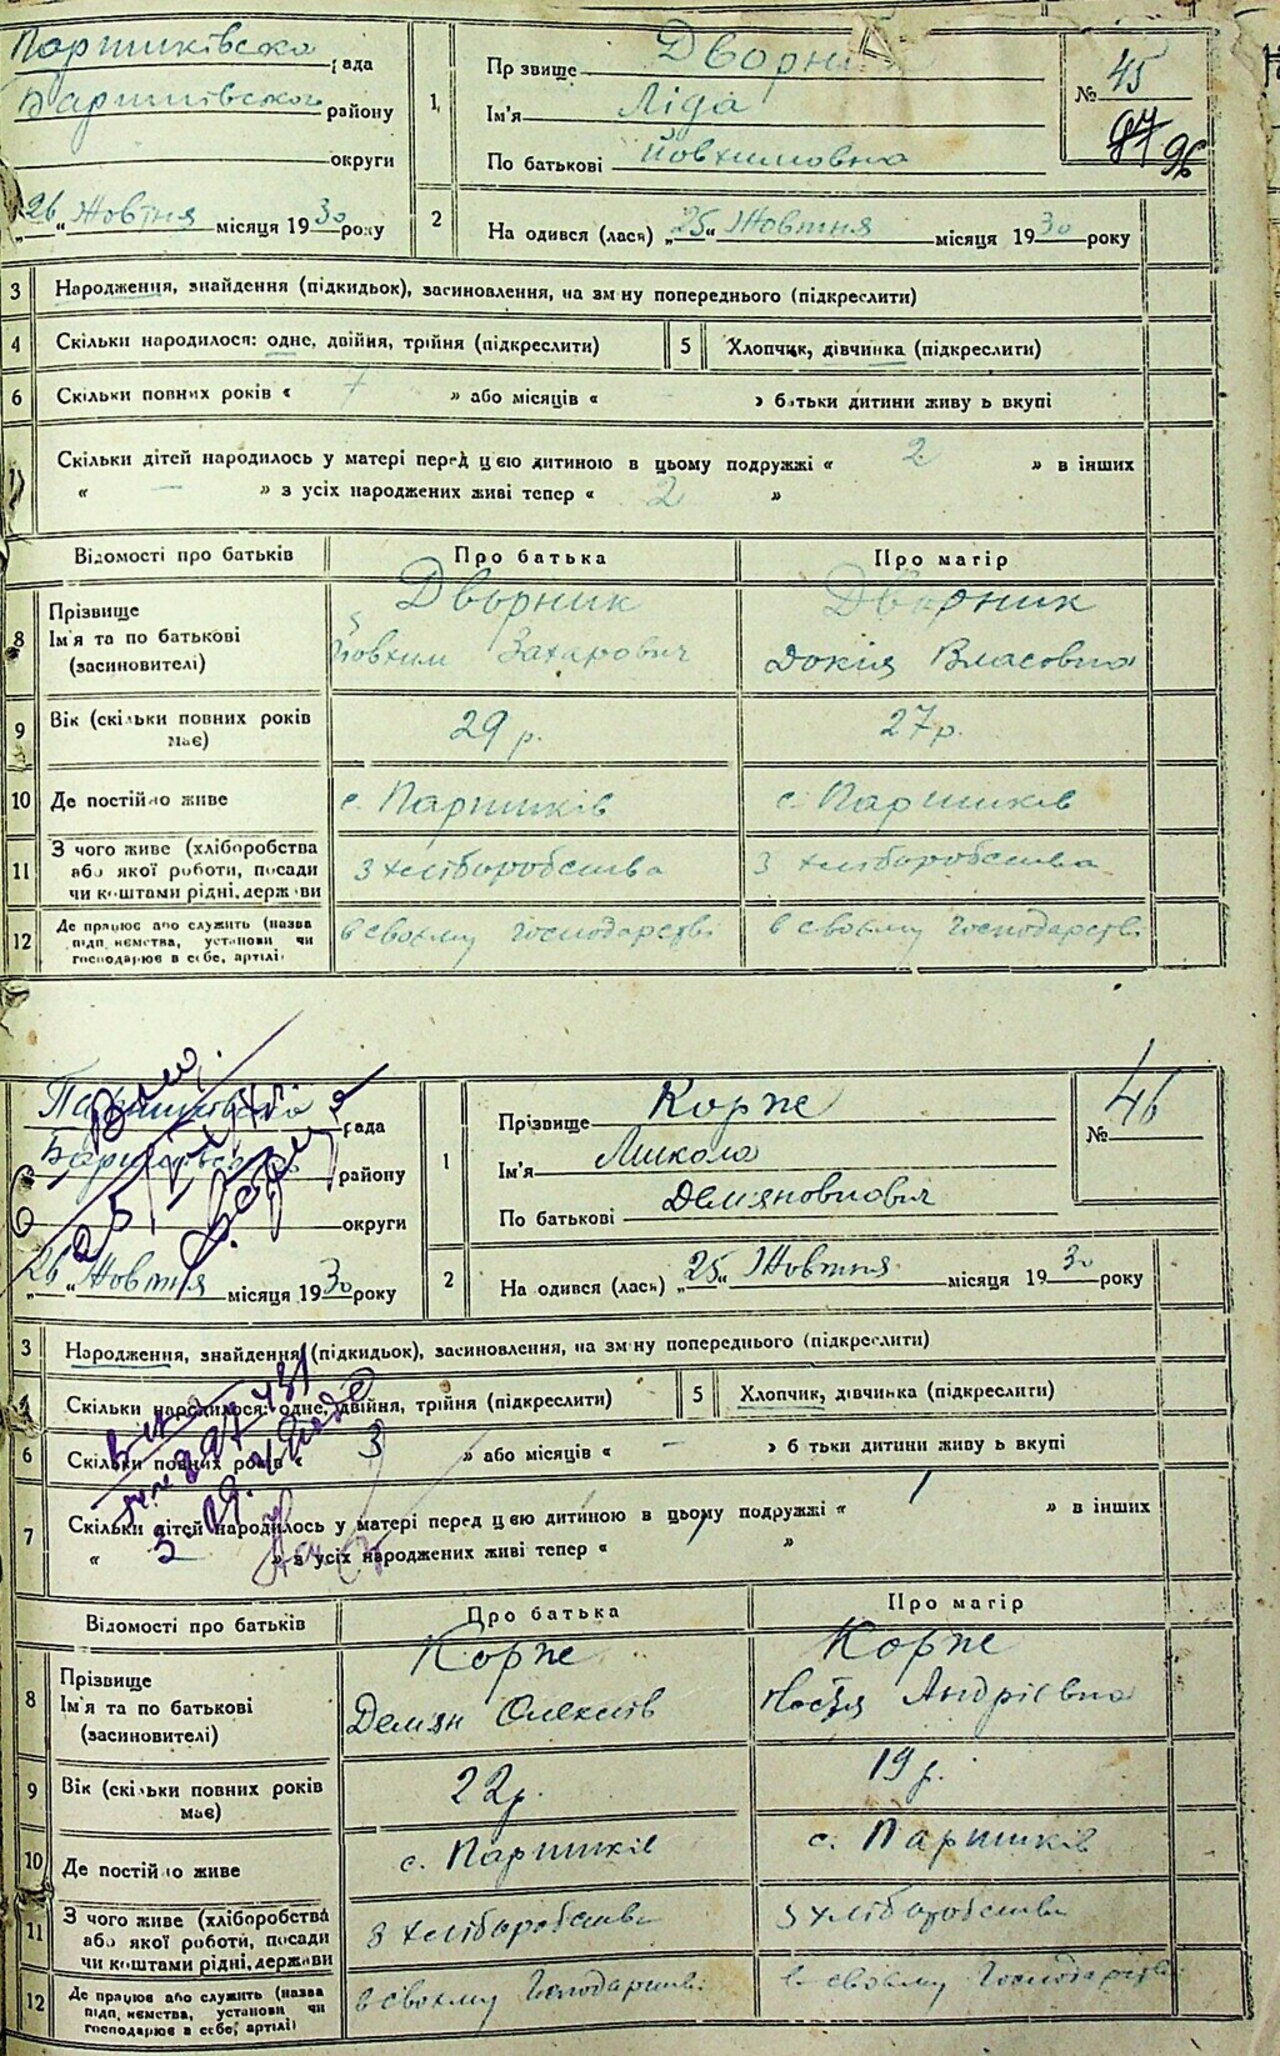 Паришківська рада
Баришівського району
округи
„26“ Жовтня місяця 1930 року
1. Прзвище Дворник
Ім'я Ліда
По батькові Йовхимовна
№ 45
96
2 На одився (лася) „25“ Жовтня місяця 1930 року
3 Народження, знайдення (підкидьок), засиновлення, на зм ну попереднього (підкреслити)
4 Скільки народилося: одне, двійня, трійня (підкреслити)
5 Хлопчик, дівчинка (підкреслити)
6 Скільки повних років « 7 » або місяців « – » батьки дитини живу ь вкупі
Скільки дітей народилось у матері перед цією дитиною в цьому подружжі « 2 » в інших
« – » з усіх народжених живі тепер « 2 »
Відомості про батьків Про батька Про матір
8 Прізвище Дворник Дворник
Ім'я та по батькові Йовхим Захарович Докія Власовна
(засиновителі)
9 Вік (скільки повних років має) 29 р. 27 р.
10 Де постійно живе с. Паришків с. Паришків
11 З чого живе (хліборобства
або якої роботи, посади
чи коштами рідні, держави
з хліборобства з хліборобства
12 Де працює або служить (назва
підп иємства, установи чи
господарює в себе, артілі)
в своєму господарстві в своєму господарстві
Паришківська рада
Баришівського району
округи
„26“ Жовтня місяця 1930 року
1 Прізвище Корже
Ім'я Микола
По батькові Демяновнович
№ 46
2 На одився (лася) „25“ Жовтня місяця 1930 року
3 Народження, знайдення (підкидьок), засиновлення, на зм ну попереднього (підкреслити)
4 Скільки народилося: одне, двійня, трійня (підкреслити)
5 Хлопчик, дівчинка (підкреслити)
6 Скільки повних років « 3 » або місяців « – » б тьки дитини живу ь вкупі
7 Скільки дітей народилось у матері перед цією дитиною в цьому подружжі « 1 » в інших
« » з усіх народжених живі тепер « »
Відомості про батьків Про батька Про матір
8 Прізвище Корже Корже
Ім'я та по батькові Демян Олексіїв Настя Андрієвна
(засиновителі)
9 Вік (скільки повних років має) 22 р. 19 р.
10 Де постійно живе с. Паришків с. Паришків
11 З чого живе (хліборобства
або якої роботи, посади
чи коштами рідні, держави
з хліборобства з хліборобства
12 Де працює або служить (назва
підп иємства, установи чи
господарює в себе, артілі)
в своєму господарстві в своєму господарстві